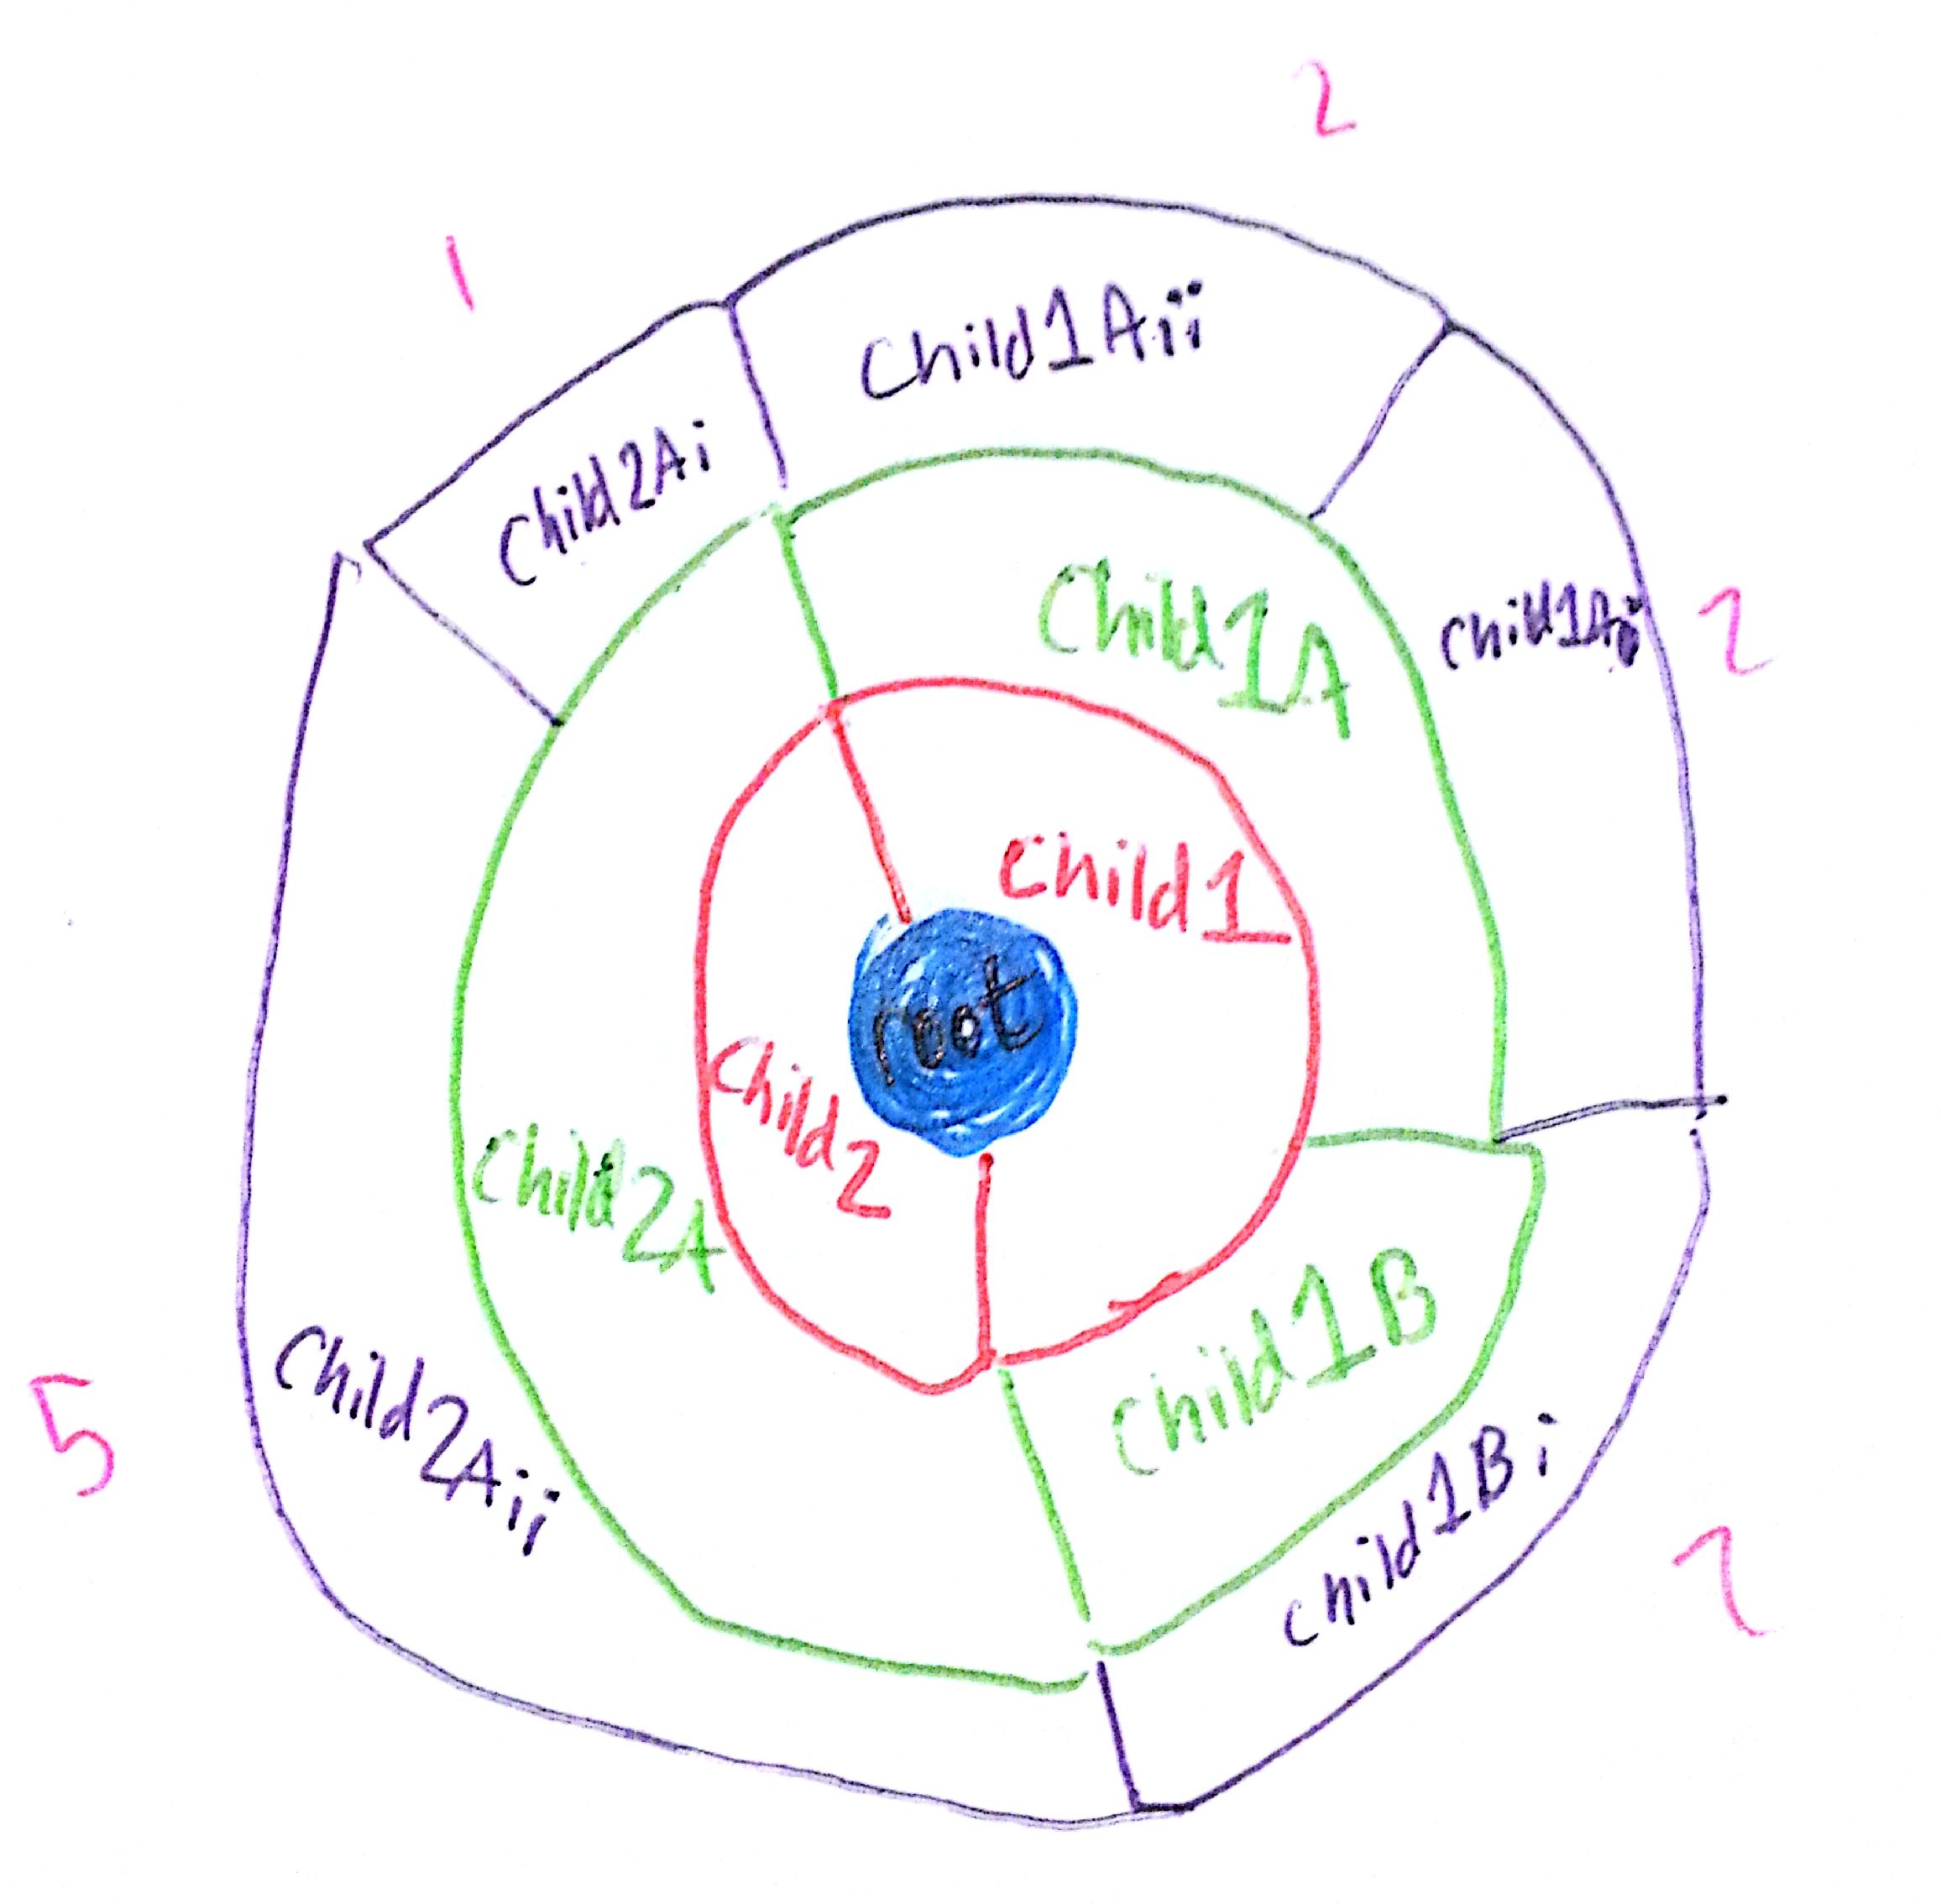 2
1
Child1Aii
Child2Ai
Child1A
Child1Ai
2
Child1
root
Child2
Child2A
Child1B
Child2Aii
5
Child1Bi
2